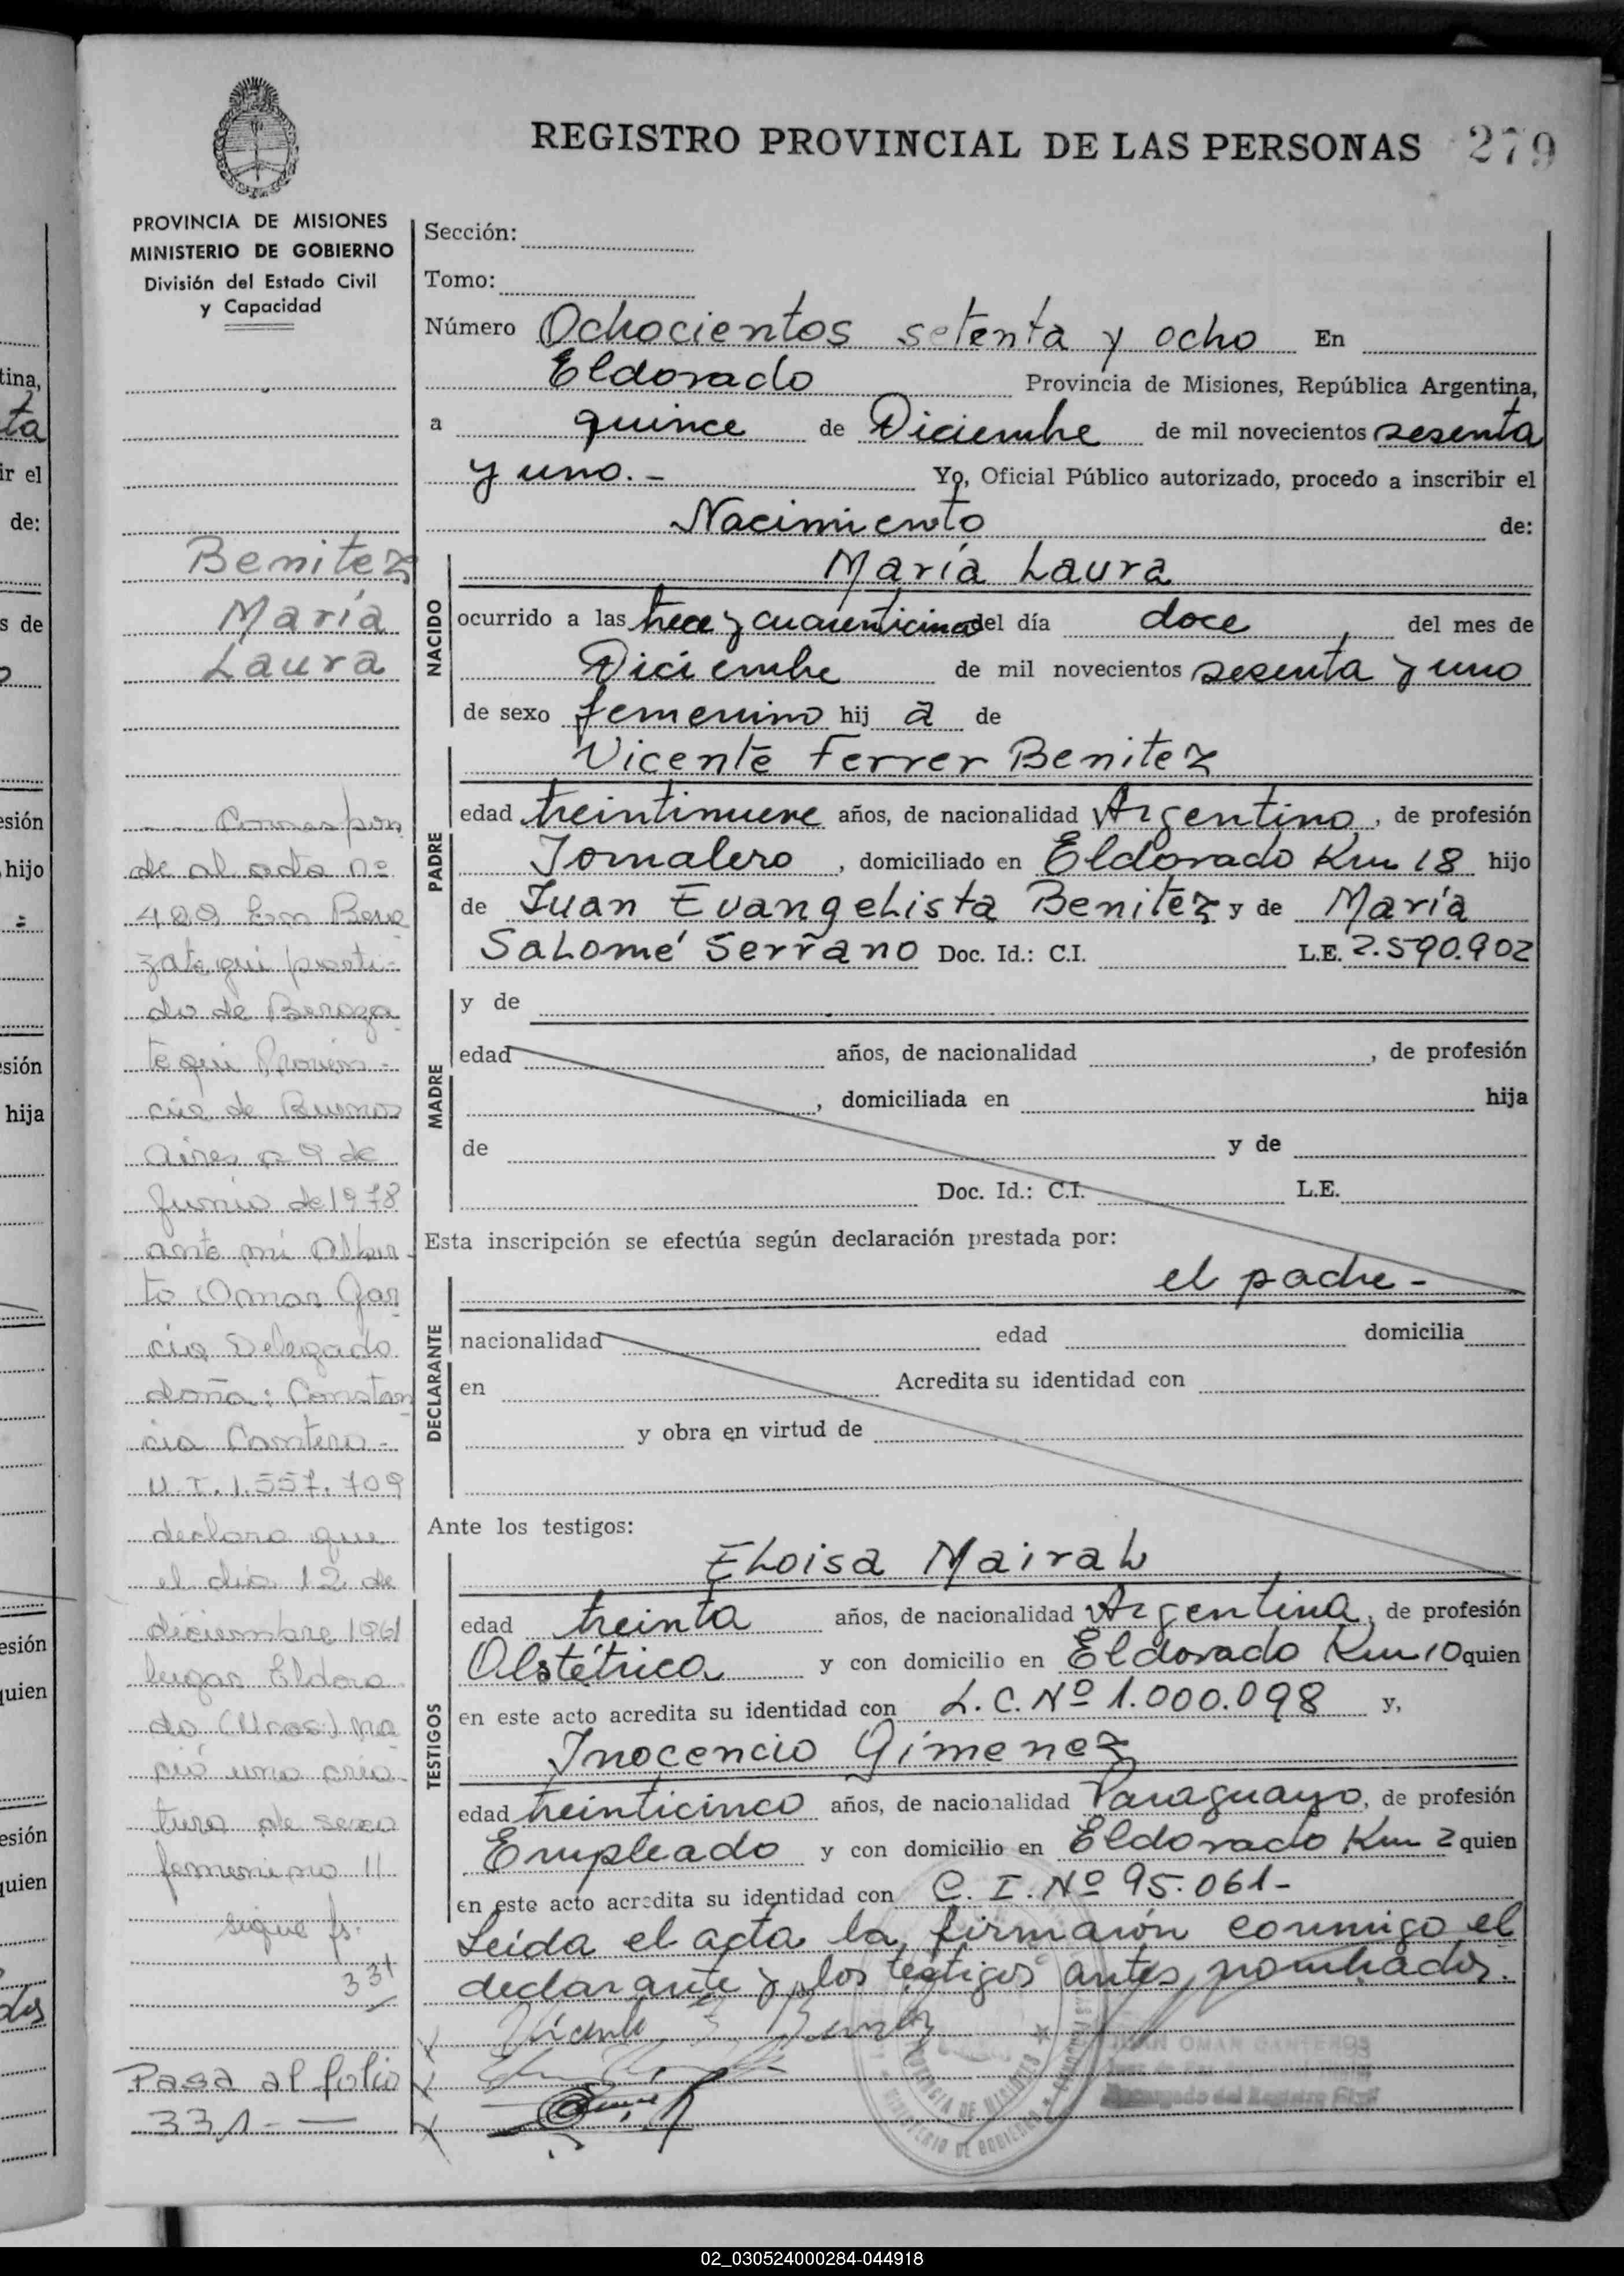 REGISTRO PROVINCIAL DE LAS PERSONAS 279
PROVINCIA DE MISIONES
MINISTERIO DE GOBIERNO
División del Estado Civil
y Capacidad
Sección:
Tomo:
Número Ochocientos setenta y ocho En
Eldorado Provincia de Misiones, República Argentina,
a quince de Diciembre de mil novecientos sesenta
y uno.- Yo, Oficial Público autorizado, procedo a inscribir el
Nacimiento de:
Benitez
María
Laura
NACIDO
María Laura
ocurrido a las trece y cuarenticinco del día doce del mes de
Diciembre de mil novecientos sesenta y uno
de sexo femenino hij a de
PADRE
Vicente Ferrer Benitez
edad treintinueve años, de nacionalidad Argentino, de profesión
Jornalero, domiciliado en Eldorado Km 18 hijo
de Juan Evangelista Benitez y de María
Salomé Serrano Doc. Id.: C.I. L.E. 2.590.902
MADRE
y de
edad años, de nacionalidad , de profesión
, domiciliada en hija
de y de
Doc. Id.: C.I. L.E.
Esta inscripción se efectúa según declaración prestada por:
DECLARANTE
el padre -
nacionalidad edad domicilia
en Acredita su identidad con
y obra en virtud de
Ante los testigos:
TESTIGOS
Eloisa Mairal
edad treinta años, de nacionalidad Argentina, de profesión
Obstétrica y con domicilio en Eldorado Km 10 quien
en este acto acredita su identidad con L.C. Nº 1.000.098 y,
Inocencio Gimenez
edad treinticinco años, de nacionalidad Paraguayo, de profesión
Empleado y con domicilio en Eldorado Km 2 quien
en este acto acredita su identidad con C.I. Nº 95.061-
Leída el acta la firmaron conmigo el
declarante y los testigos antes nombrados.
Correspon
de al acta nº
409 En Bera
zategui parti-
do de Beraza
tegui Provin-
cia de Buenos
Aires a 9 de
Junio de 1978
ante mi Alber-
to Omar Gar
cia Delegado
doña: Constan
cia Cantero-
1.557.709
declara que
el dia 12 de
diciembre 1961
lugar Eldora
do (Mnes.) na
ció una cria-
tura de sexo
femenino //
sigue fs.
331
Pasa al folio
331- —
PROVINCIA DE MISIONES
MINISTERIO DE GOBIERNO
JUAN OMAR CANTEROS
Encargado del Registro Civil
02_030524000284-044918